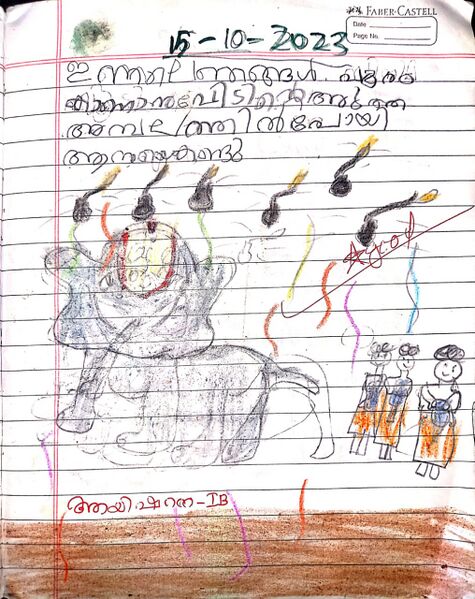 FABER-CASTELL
Date
Page No.
15-10-2023
ഇന്നലെ ഞങ്ങൾ
കാണാൻ വീടിന്റെ അടുത്ത
അമ്പലത്തിൽ പോയി
ആനയെ കണ്ടു
ആയിഷ റന - IB